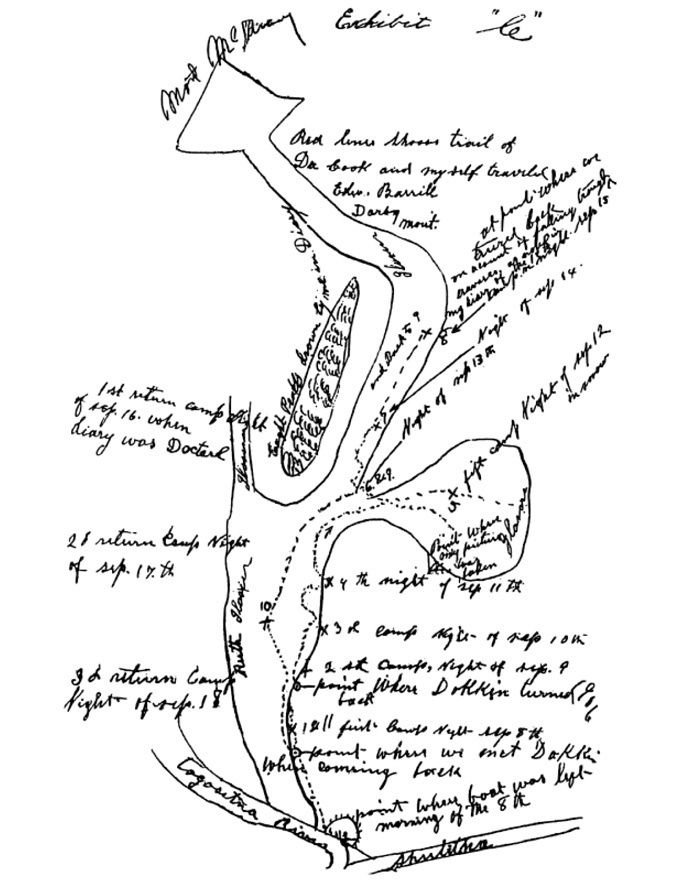 Exhibit "C"
Mont McKinley
Red lines shows trail of
Dr Cook and myself traveled
Edw. Barrill
Darby mont.
at point where we
turned back
on account of
my diary
sep. 15
Night of sep 14.
and Back to 9
8
Night of sep 13th
fift camp Night of sep 12
in snow
1st return camp Night
of sep. 16. when
diary was Doctard
6. & 9.
x
5
Point where
my picture
was
taken
glacier
7
2d return Camp Night
of sep. 17. th
x 4 th night of sep 11 th
10
Ruth Glacier
x 3 d camp night of sep 10 th
2 st Camp, Night of sep. 9
point Where Dokkin turned
back
3 d return Camp
Night of sep. 18
x 1st 11 first Camp Night sep 8 th
point where we met Dokkin
when coming back
Togositna River
point where boat was left
morning of the 8 th
Shulitna